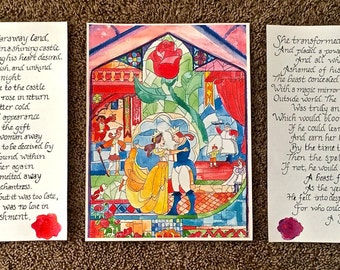 araway land,
a shining castle
ng his heart desired.
ish, and unkind
night
e to the castle
rose in return
tter cold
appearance
the gift
woman away
to be deceived by
ound within
her again
melted away
chantress.
but it was too late,
was no love in
shment,
She transformed
And placed a pow
And all w
Ashamed of his
The beast concealed
With a magic mirror
Outside world. The
Was truly an
Which would bloo
If he could lear
And earn her
By the time t
Then the spel
If not, he would
A beast f
As the ye
He fell into desp
For who coul
A